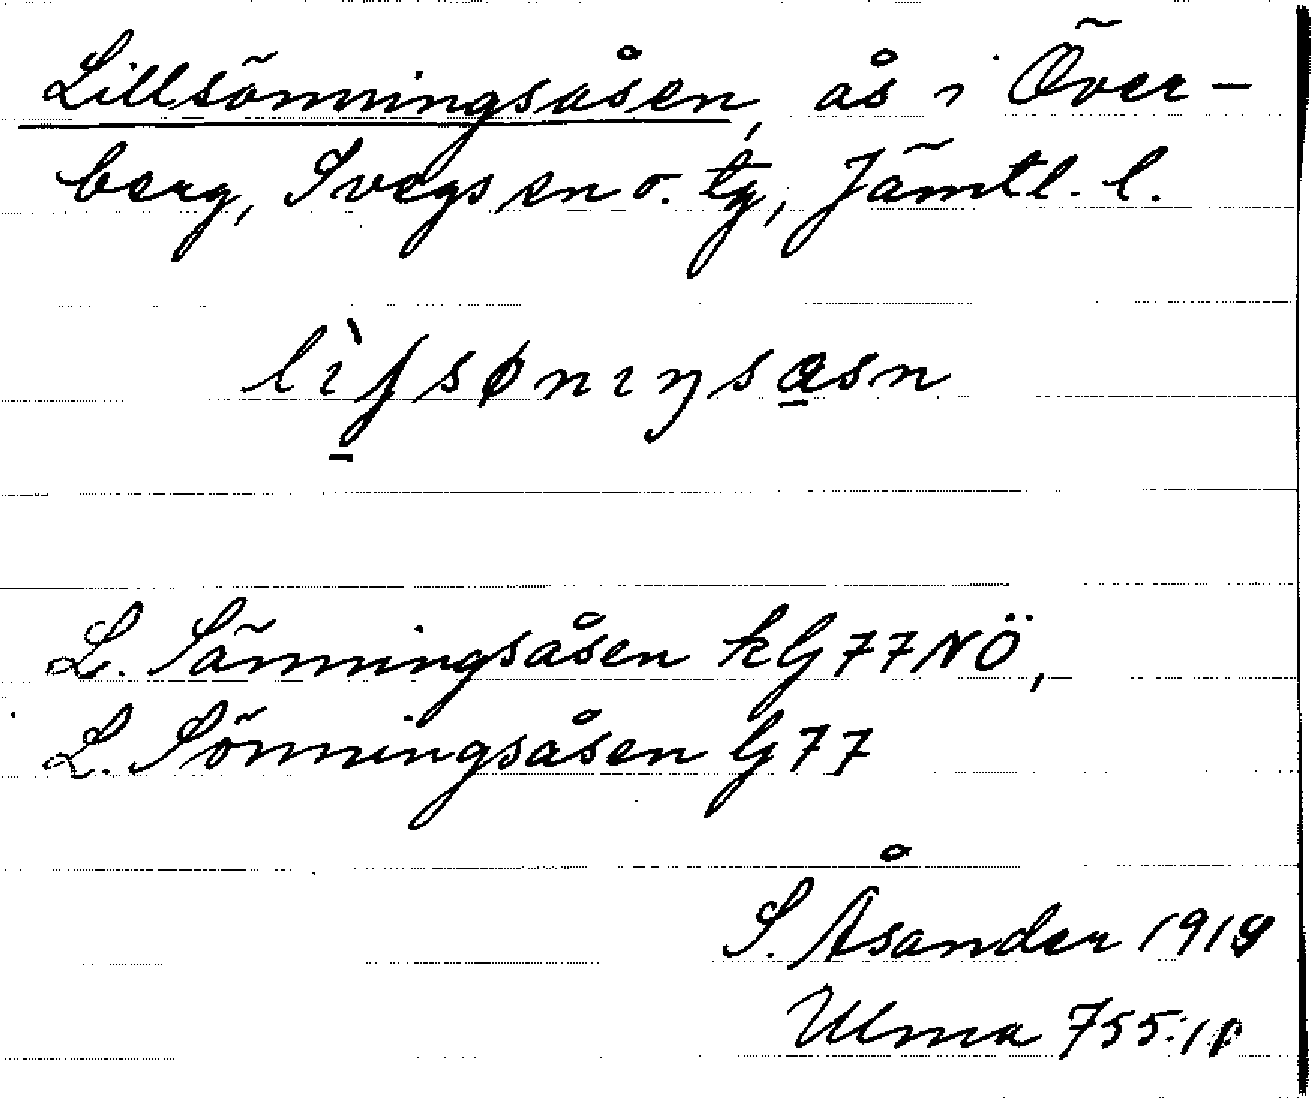 Lillsönningsåsen, ås i Över-
berg, Svegs sn o. tg, Jämtl. l.
L. Sänningsåsen kG77NÖ,
L. Sönningsåsen G77
S. Åsander 1919
Ulma 755:1